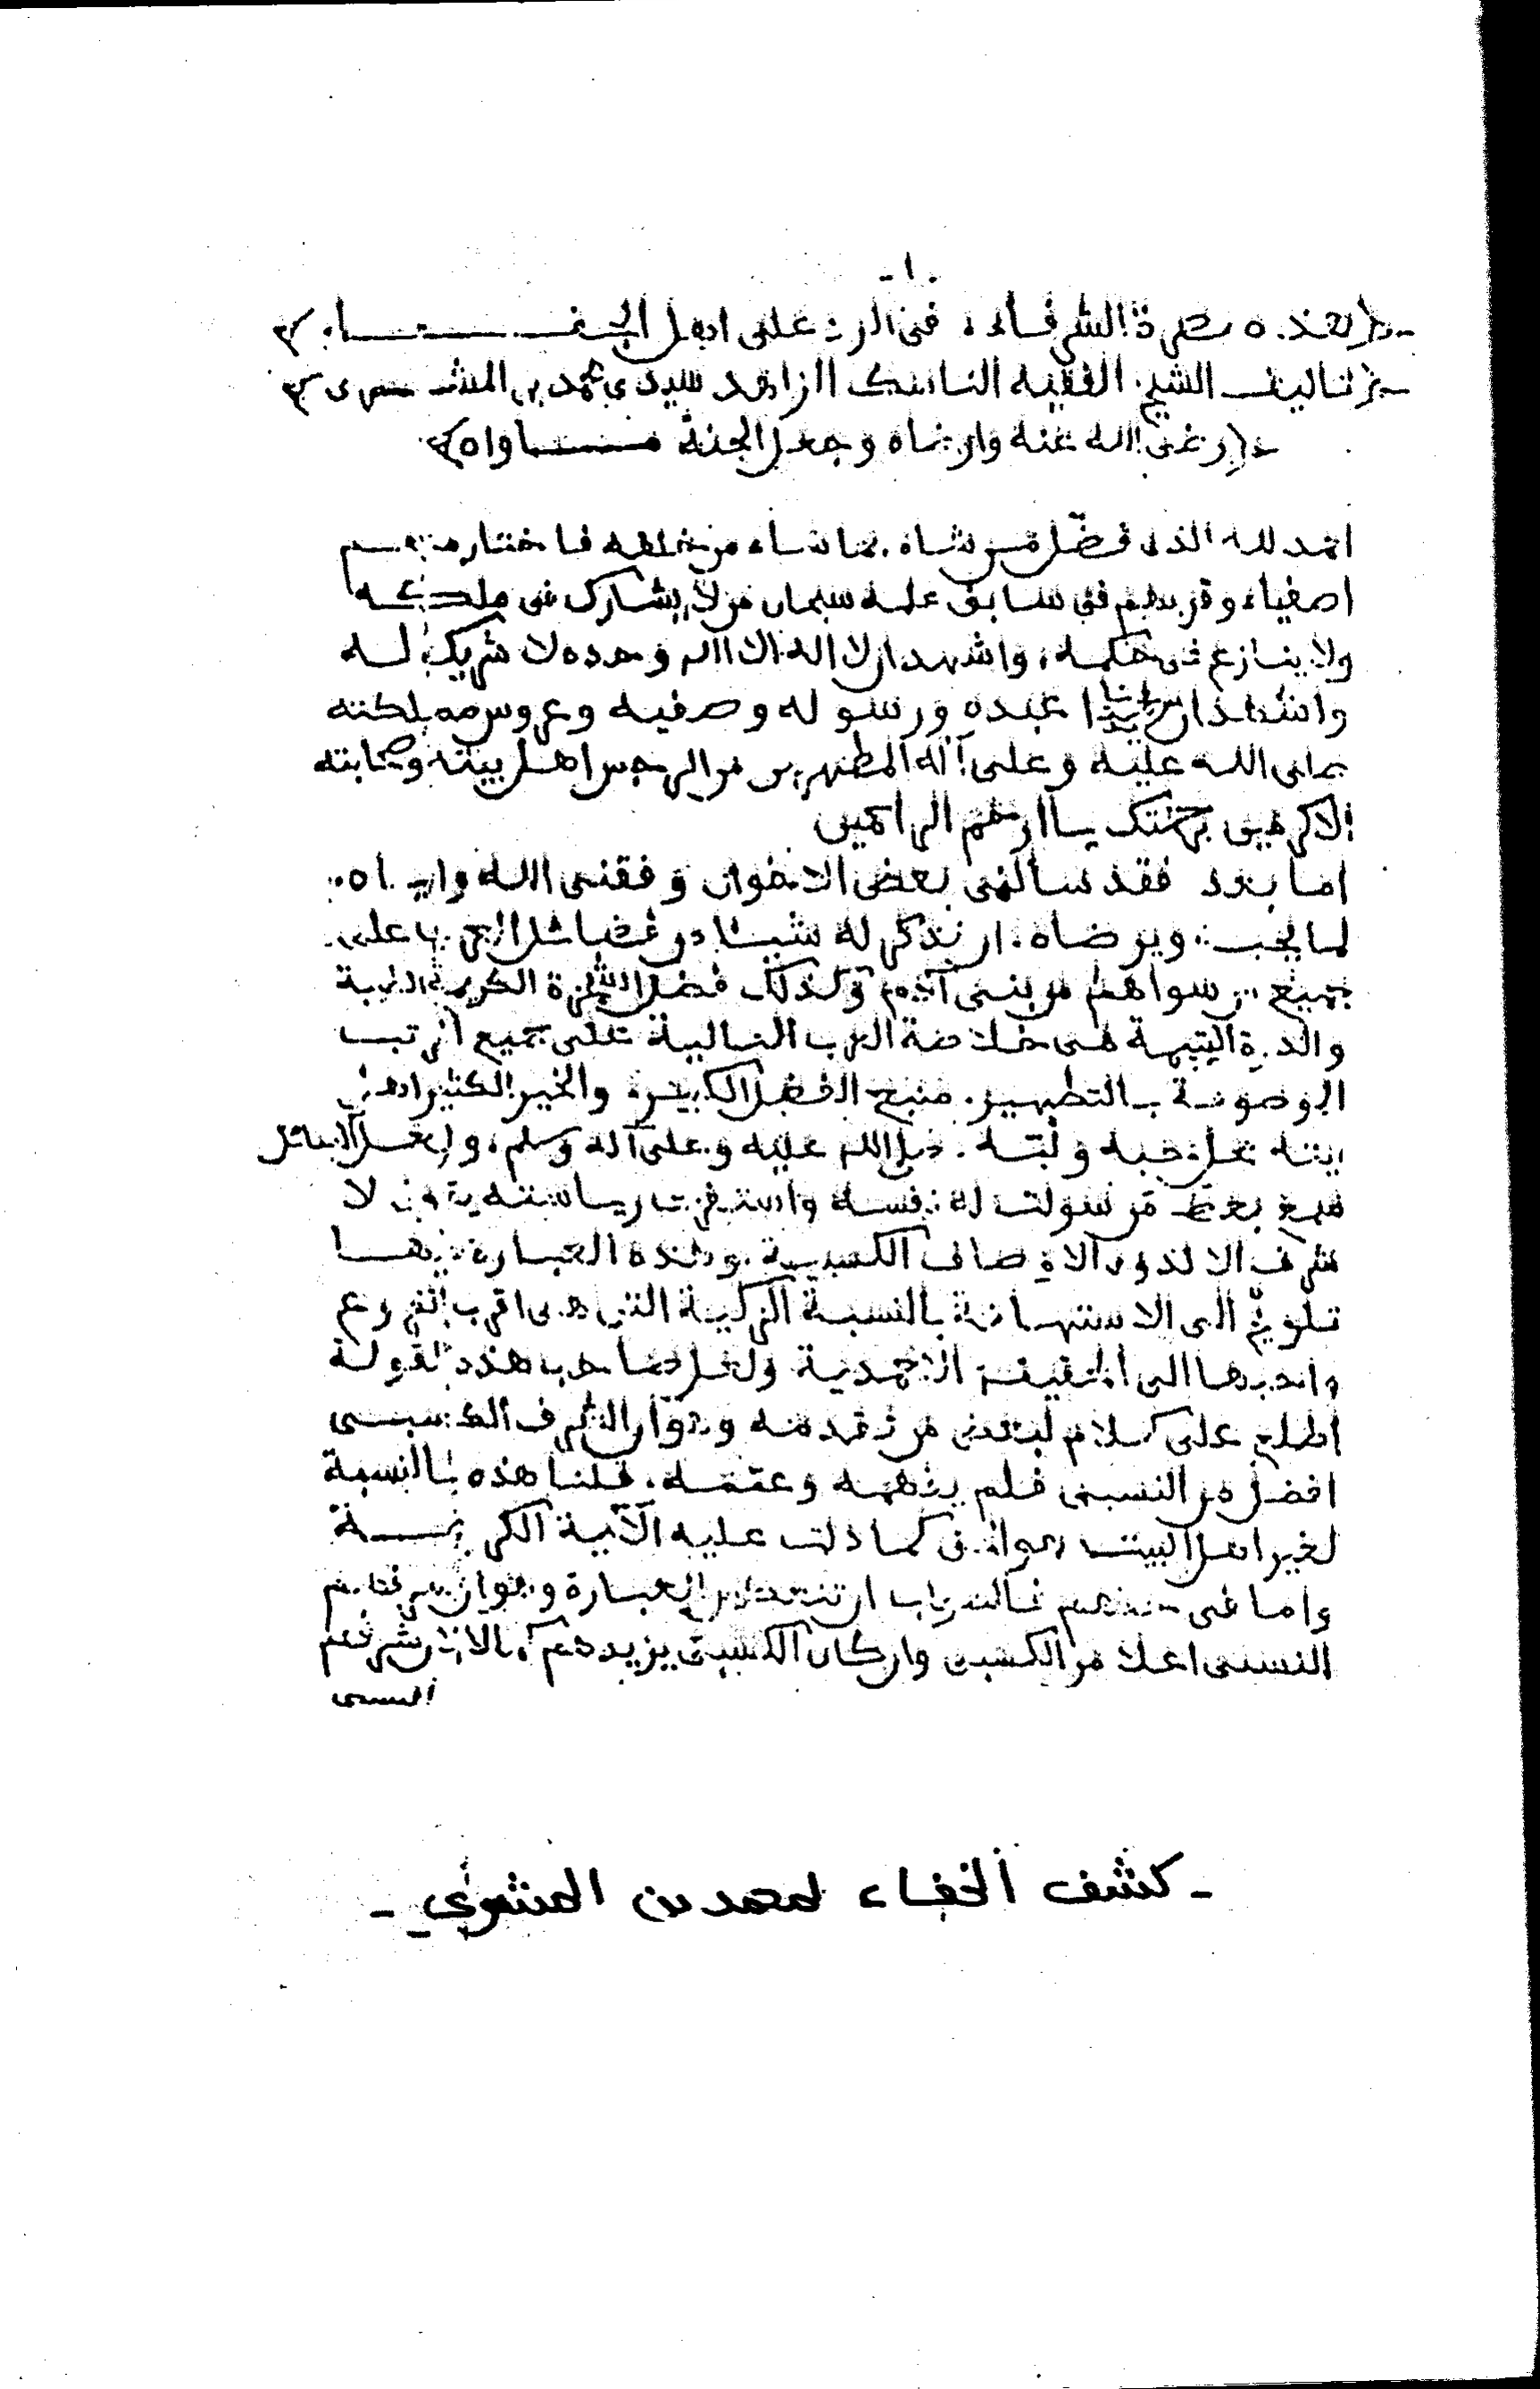 -١-
هذه نصرة الشرفاء، في الرد على اهل الجفـــــاء
تاليف الشيخ الفقيه الناسك الزاهد سيدي محمد بن المشـــرى
رضي الله عنه وارضاه وجعل الجنة مـــــاواه
الحمد لله الذى فضّل من شاء بما شاء من خلقه فاختار منهـم
اصفياء وقربهم في سابق علمه سبحان من لا يشارك في ملكـه
ولا ينازع في حكمه، واشهد ان لا اله الا الله وحده لا شريك لـه
واشهد ان عبده ورسوله وصفيه وعروس مملكته
صلى الله عليه وعلى آله المطهرين من الرجس اهل بيته وصحابته
الاكرمين برحمتك يـا ارحم الراحمين
اما بعد فقد سالنى بعض الاخوان وفقنى الله وايـاه
لما يحبه ويرضاه، ان نذكر له شيـئا من فضائل العرب على
جميع من سواهم من بنى آدم وكذلك فضل الشجرة الكريمة الطيبة
والدرة اليتيمة هى خلاصة العرب العالية على جميع الرتب
الموصوفـة بـالتطهير. منبع الفضل الكبير، والخير الكثير اهـل
بيته على حبه ولقـه. صلى الله عليه وعلى آله وسلم، ولعـل السائل
سمع بعض من سولت له نفسـه واستفزت رياسته يقول لا
شرف الا لذوى الاوصاف الكسبيـة، وهذه العبارة فيهـا
تلويح الى الاستهانة بالنسبة الزكيـة التى هـى اقرب الفروع
واجذبها الى الحقيقـة الاحمدية ولعـل صاحب هذه القولـة
اطلع على كـلام لبعض من تقدمه وهو ان الشرف الكسبـى
افضل من النسبى فلم يفهمه وعمّمـه، قلنـا هذه بالنسبة
لغير اهل البيت صواب كما دلت عليه الآية الكريمـــة
واما فى حقهـم فالصواب ان تنعكس العبارة وهو ان شرفهـم
النسبى اعلا من الكسبى وان كان الكسبى يزيدهم كمالا لان شرفهم
النسبى
- كشف الخفاء لمحمد بن المشري -